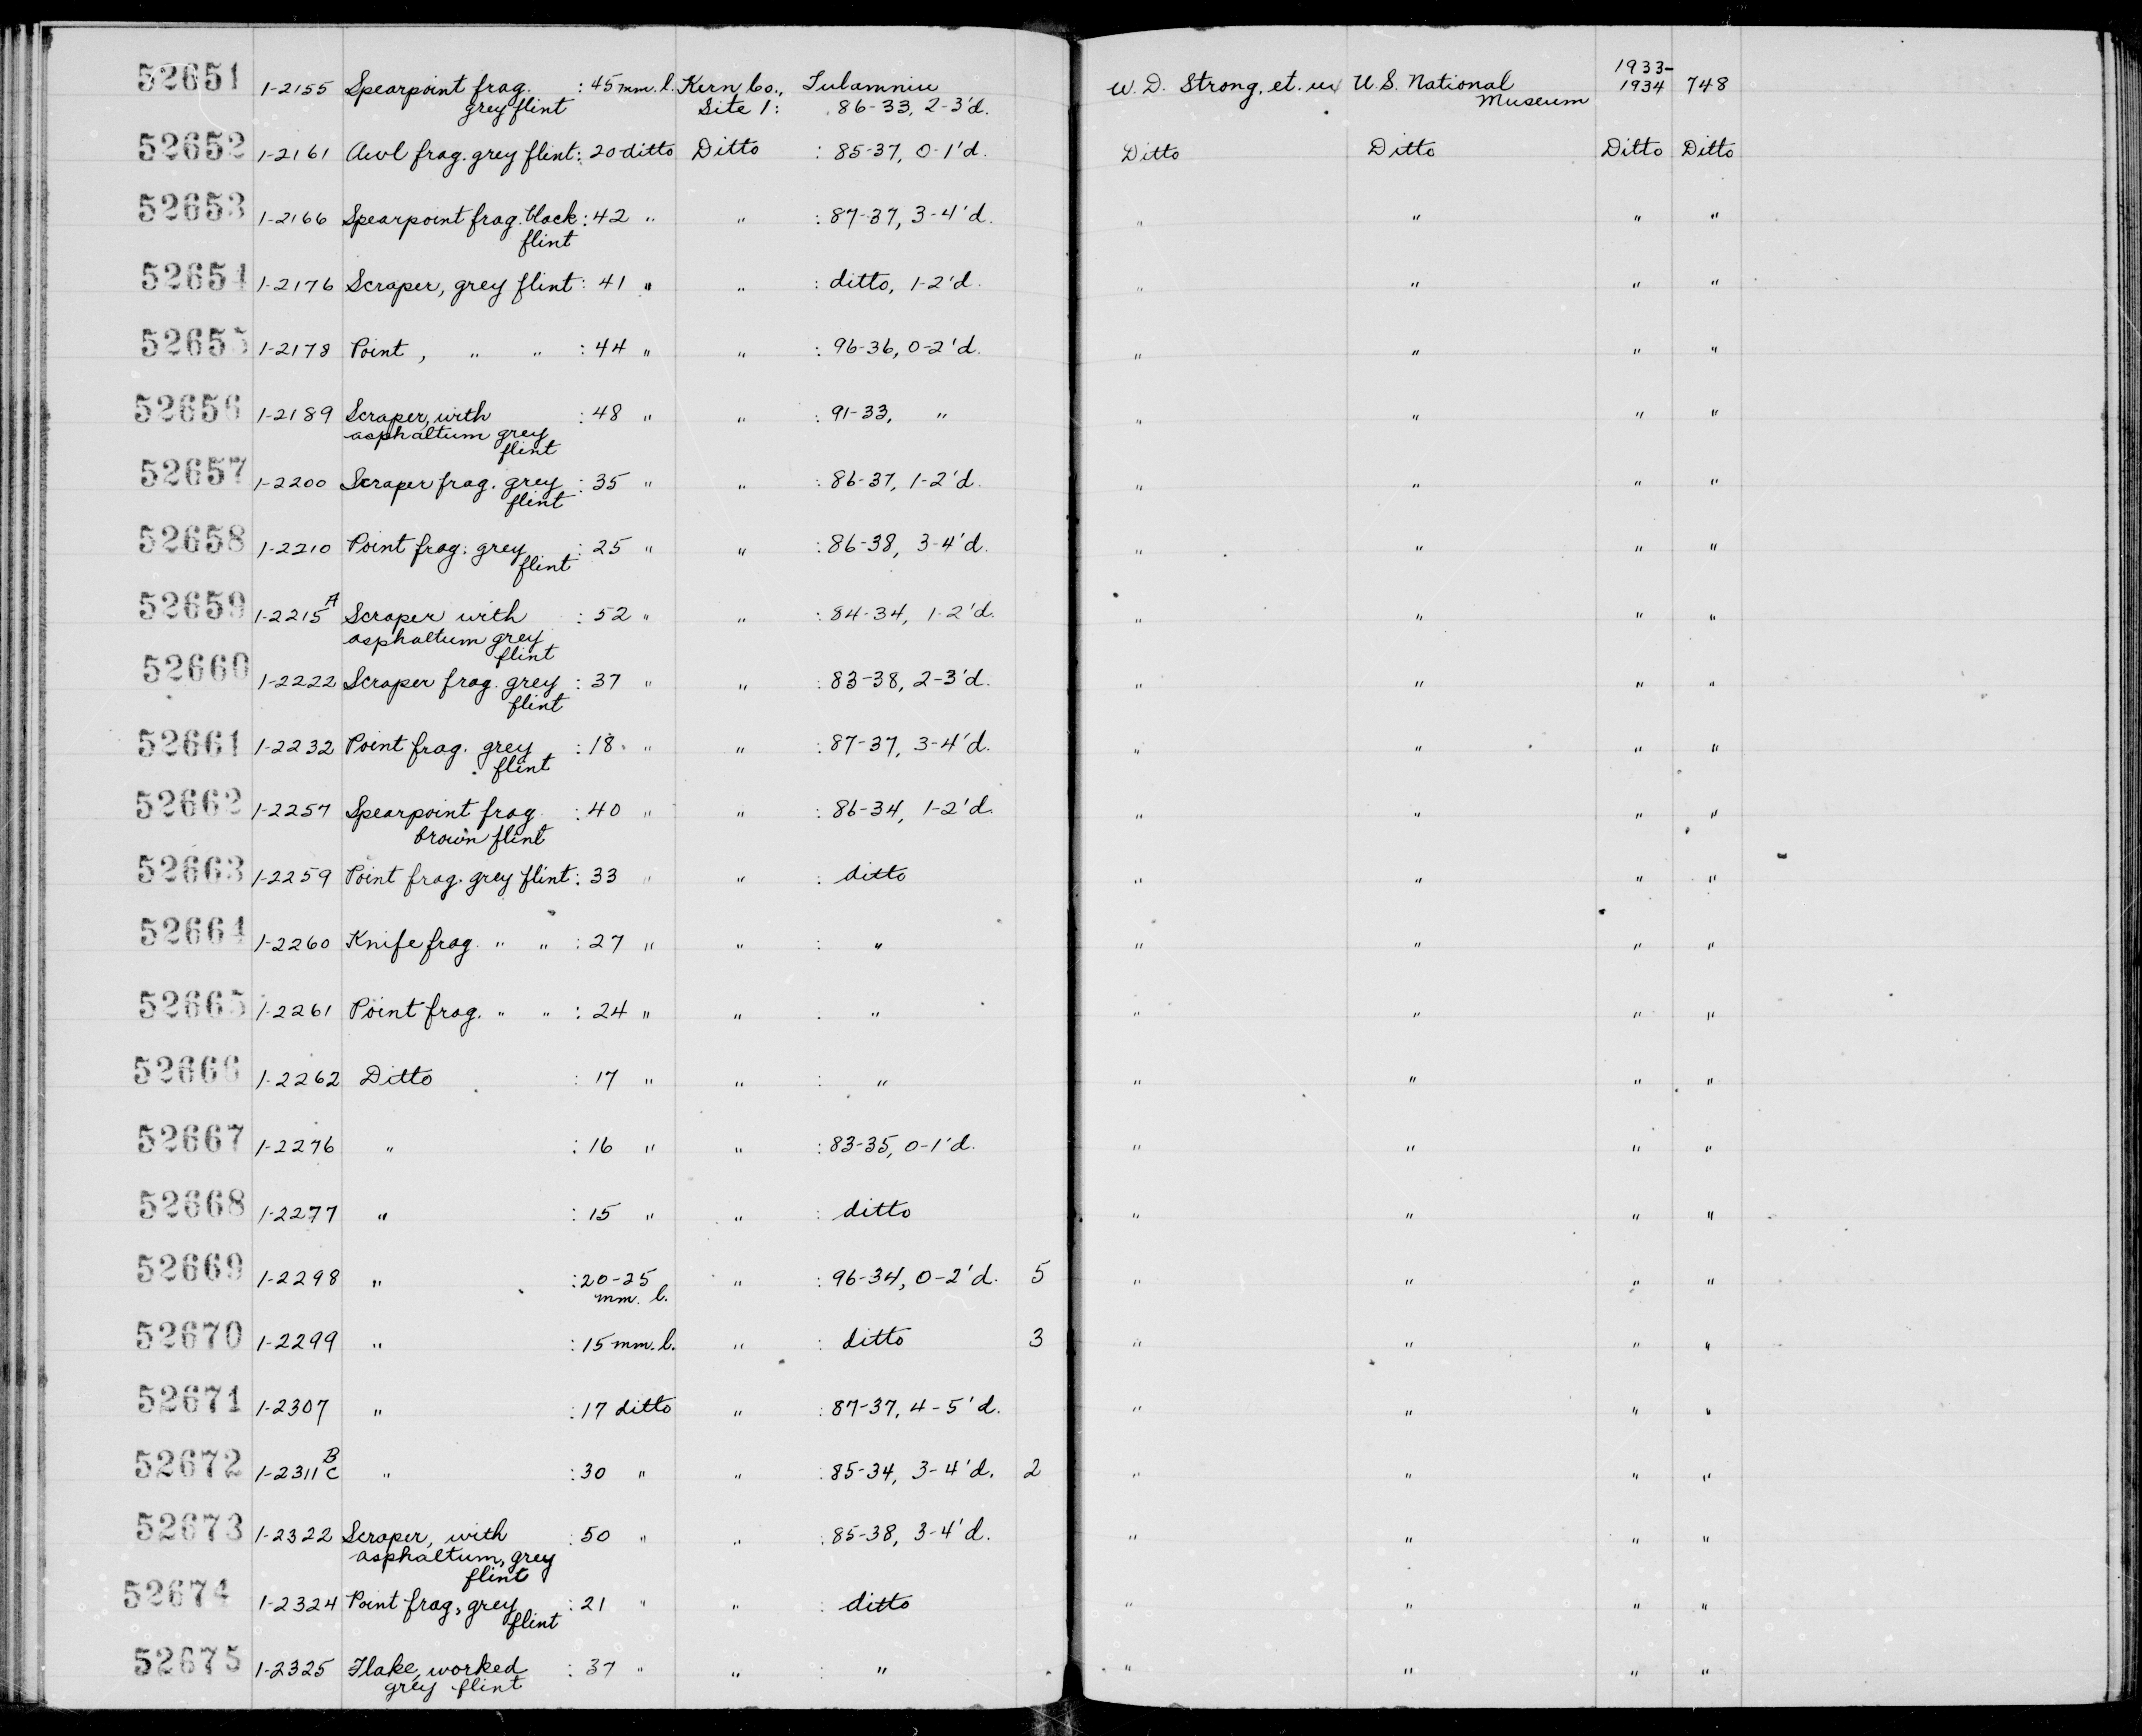 52651 1-2155 Spearpoint frag. : 45 mm. l. Kern Co., Tulamniu W. D. Strong, et. ux U.S. National 1933- 748
grey flint Site 1: 86-33, 2-3'd. Museum 1934
52652 1-2161 Awl frag. grey flint : 20 ditto Ditto : 85-37, 0-1'd. Ditto Ditto Ditto Ditto
52653 1-2166 Spearpoint frag. black : 42 " " : 87-37, 3-4'd. " " " "
flint
52654 1-2176 Scraper, grey flint : 41 " " : ditto, 1-2'd. " " " "
52655 1-2178 Point, " " : 44 " " : 96-36, 0-2'd. " " " "
52656 1-2189 Scraper, with : 48 " " : 91-33, " " " " "
asphaltum grey
flint
52657 1-2200 Scraper frag. grey : 35 " " : 86-37, 1-2'd. " " " "
flint
52658 1-2210 Point frag. grey : 25 " " : 86-38, 3-4'd. " " " "
flint
52659 1-2215A Scraper with : 52 " " : 84-34, 1-2'd. " " " "
asphaltum grey
flint
52660 1-2222 Scraper frag. grey : 37 " " : 83-38, 2-3'd. " " " "
flint
52661 1-2232 Point frag. grey : 18 " " : 87-37, 3-4'd. " " " "
flint
52662 1-2257 Spearpoint frag. : 40 " " : 86-34, 1-2'd. " " " "
brown flint
52663 1-2259 Point frag. grey flint : 33 " " : ditto " " " "
52664 1-2260 Knife frag. " " : 27 " " : " " " " "
52665 1-2261 Point frag. " " : 24 " " : " " " " "
52666 1-2262 Ditto : 17 " " : " " " " "
52667 1-2276 " : 16 " " : 83-35, 0-1'd. " " " "
52668 1-2277 " : 15 " " : ditto " " " "
52669 1-2298 " : 20-25 " : 96-34, 0-2'd. 5 " " " "
mm. l.
52670 1-2299 " : 15 mm. l. " : ditto 3 " " " "
52671 1-2307 " : 17 ditto " : 87-37, 4-5'd. " " " "
52672 1-2311 B C " : 30 " " : 85-34, 3-4'd. 2 " " " "
52673 1-2322 Scraper, with : 50 " " : 85-38, 3-4'd. " " " "
asphaltum, grey
flint
52674 1-2324 Point frag, grey : 21 " " : ditto " " " "
flint
52675 1-2325 Flake, worked : 37 " " : " " " " "
grey flint